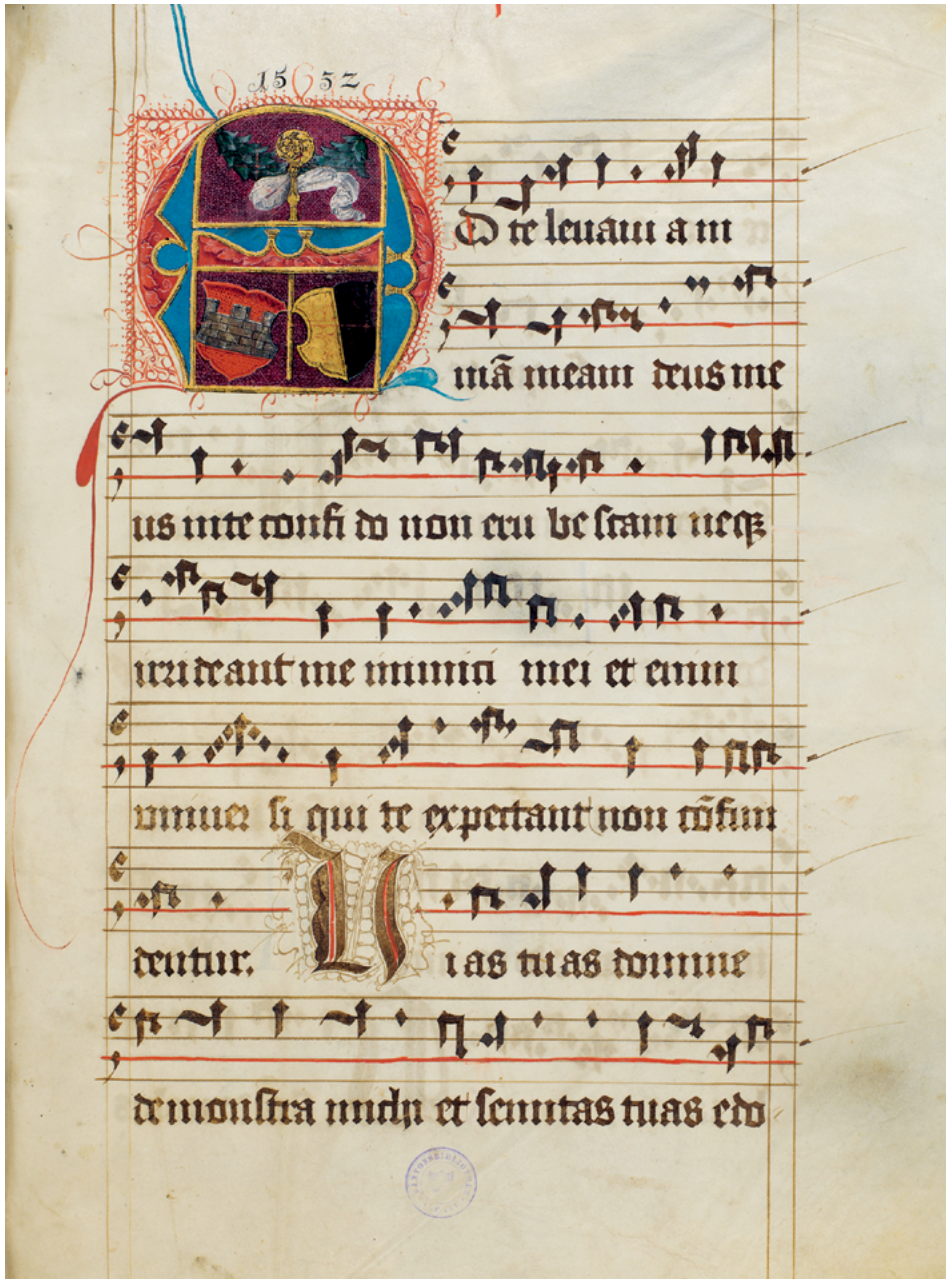 1532
AD te leuaui a ni
mā meam deus me
us inte confi do non eru be scam neqꝫ
irrideant me inimici mei et enim
vniuer si qui te expectant non cōfun
dentur. Vias tuas domine
demonstra michi et semitas tuas edo